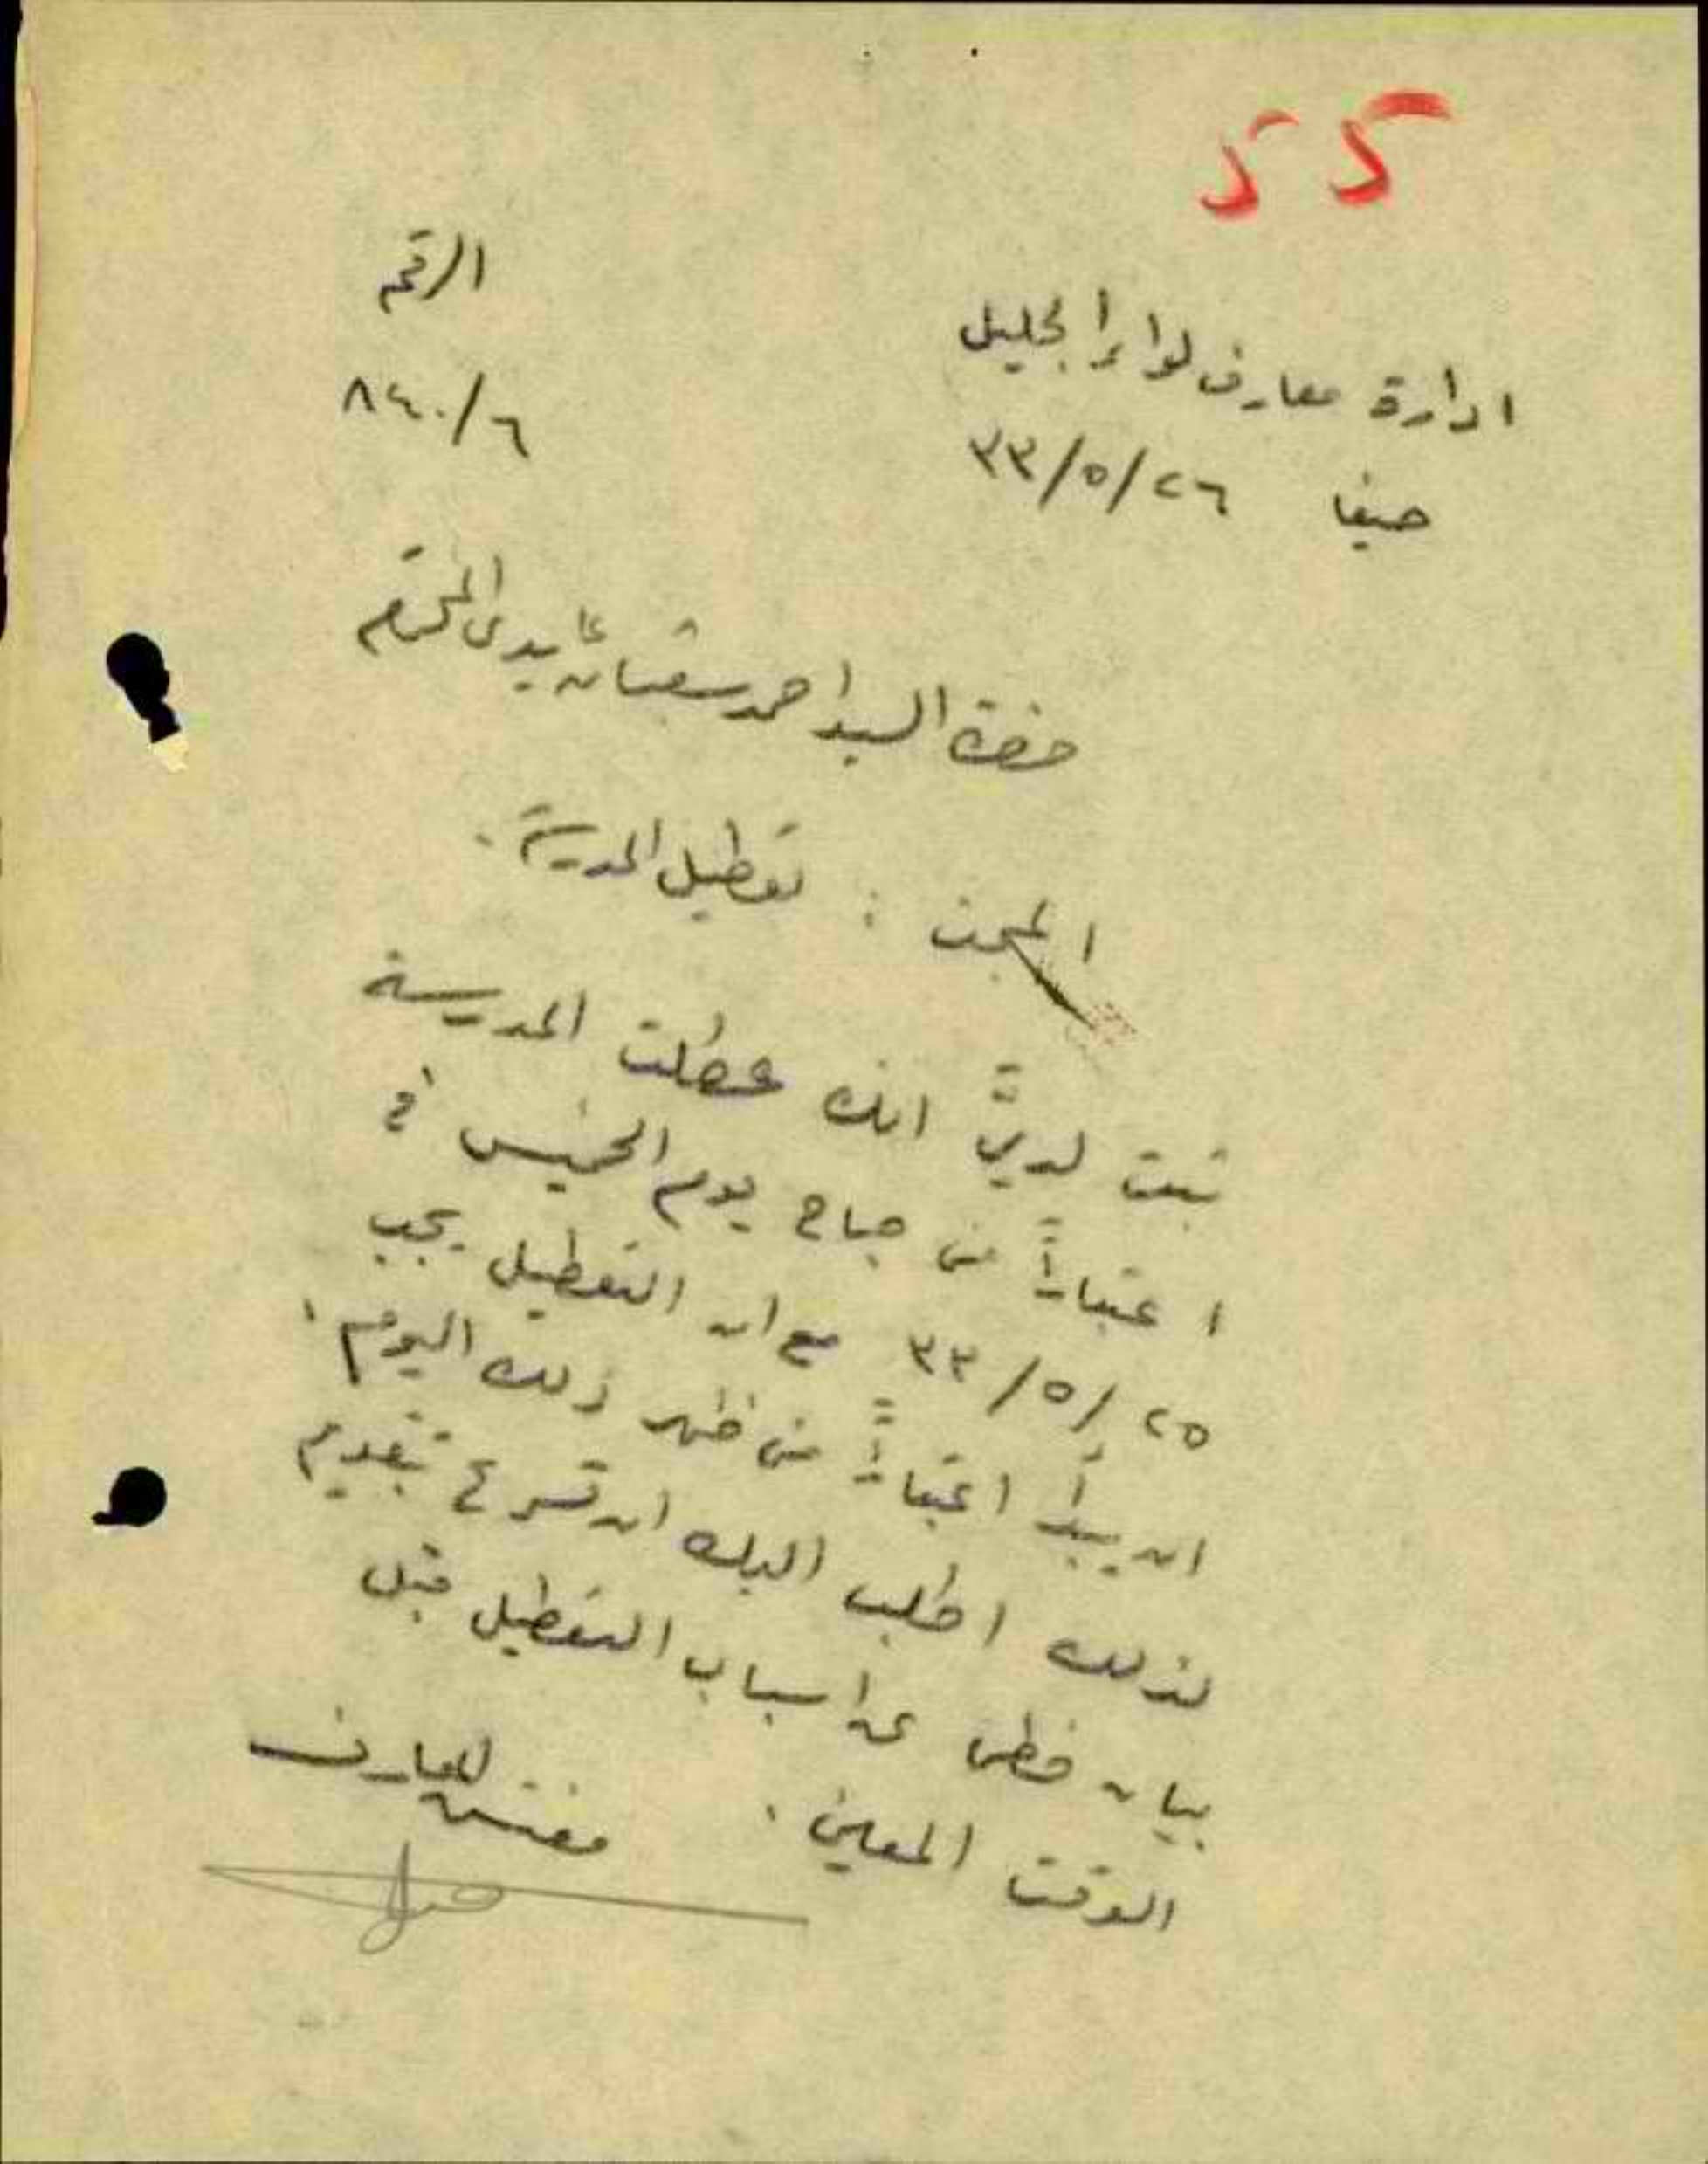 55
الرقم
٦/٨٤٠
ادارة معارف لواء الجليل
حيفا ٢٦/٥/٣٣
حضرة السيد احمد شعبان عايدي المحترم
المبحث : تعطيل المدرسة .
ثبت لديَّ انك عطلت المدرسة
اعتباراً من صباح يوم الخميس في
٢٥/٥/٣٣ مع ان التعطيل يجب
ان يبدأ اعتباراً من ظهر ذلك اليوم .
لذلك اطلب اليك ان تسرع بتقديم
بيان خطي عن اسباب التعطيل قبل
الوقت المعين .
مفتش المعارف